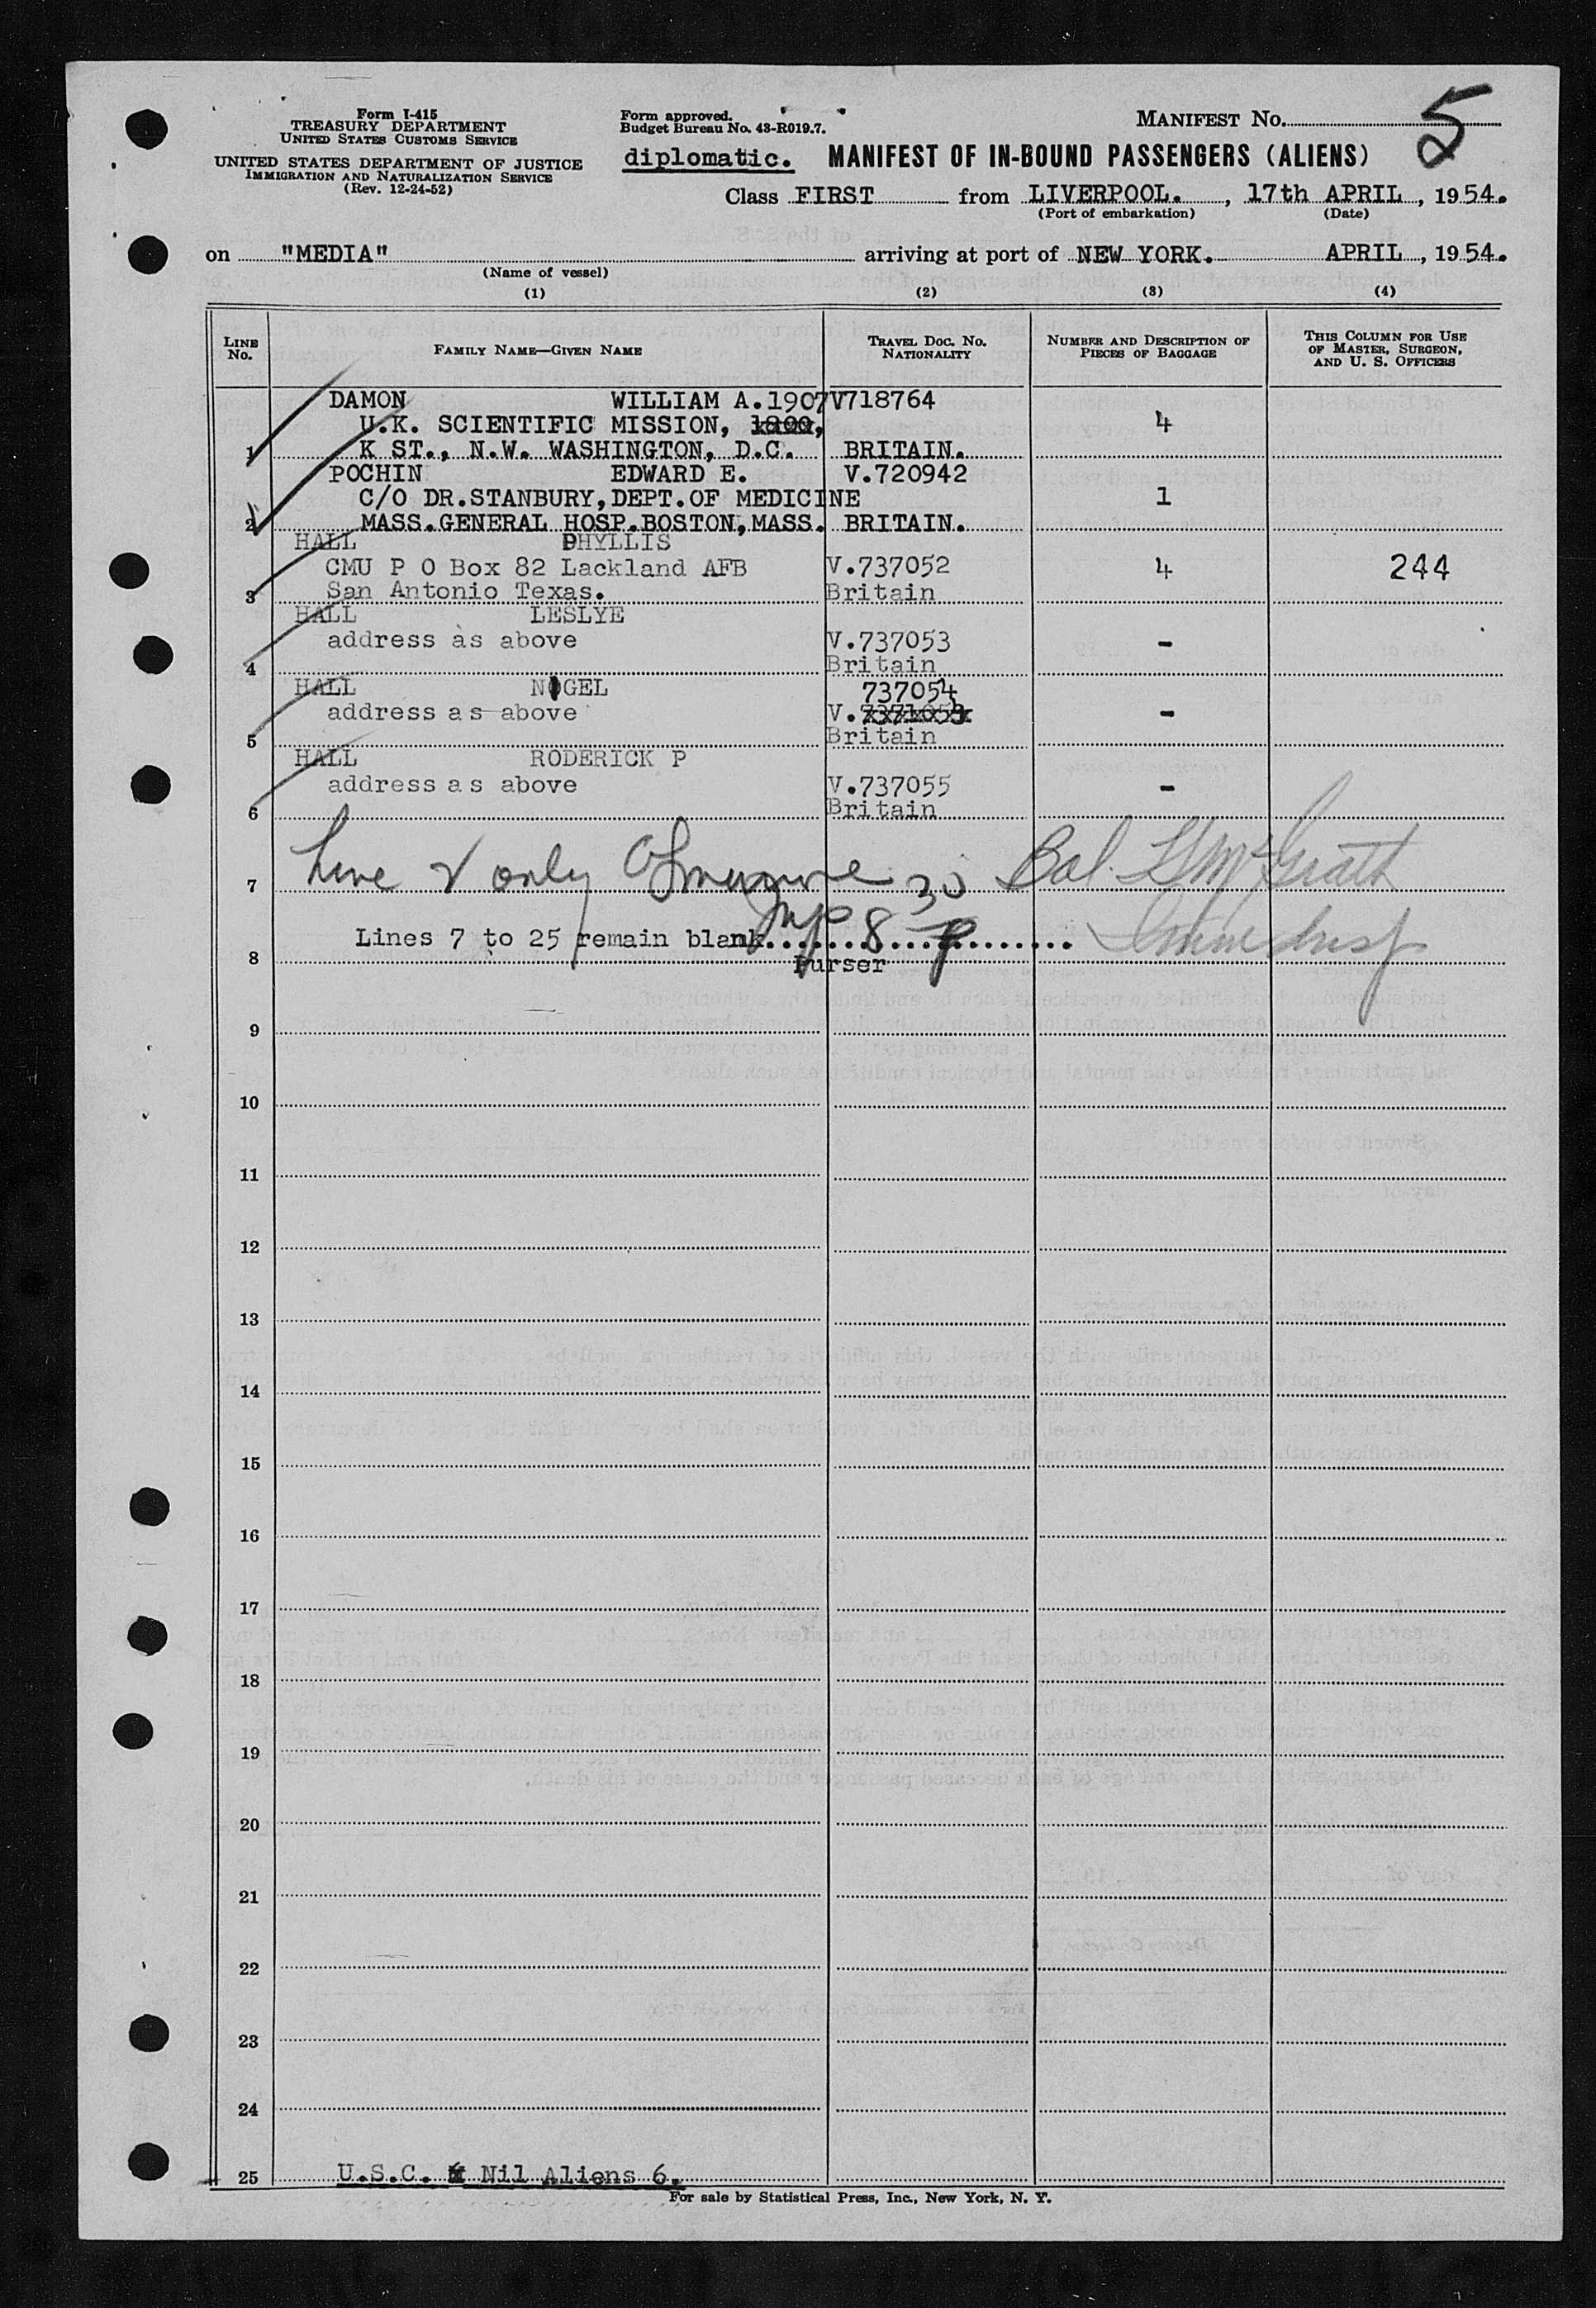 Form I-415
TREASURY DEPARTMENT
UNITED STATES CUSTOMS SERVICE
UNITED STATES DEPARTMENT OF JUSTICE
IMMIGRATION AND NATURALIZATION SERVICE
(Rev. 12-24-52)
Form approved.
Budget Bureau No. 43-R019.7.
MANIFEST No. 5
diplomatic. MANIFEST OF IN-BOUND PASSENGERS (ALIENS)
Class FIRST from LIVERPOOL., 17th APRIL, 1954.
(Port of embarkation) (Date)
on "MEDIA" arriving at port of NEW YORK. APRIL, 1954.
(Name of vessel)
(1) (2) (3) (4)
LINE No. FAMILY NAME—GIVEN NAME TRAVEL DOC. NO. NATIONALITY NUMBER AND DESCRIPTION OF PIECES OF BAGGAGE THIS COLUMN FOR USE OF MASTER, SURGEON, AND U. S. OFFICERS
DAMON WILLIAM A.1907 V718764
U.K. SCIENTIFIC MISSION, 1800, 4
1 K ST., N.W. WASHINGTON, D.C. BRITAIN.
POCHIN EDWARD E. V.720942
C/O DR.STANBURY,DEPT.OF MEDICINE 1
2 MASS.GENERAL HOSP.BOSTON,MASS. BRITAIN.
HALL PHYLLIS
CMU P O Box 82 Lackland AFB V.737052 4 244
3 San Antonio Texas. Britain
HALL LESLYE
address as above V.737053 -
4 Britain
HALL NIGEL 737054
address as above V. -
5 Britain
HALL RODERICK P
address as above V.737055 -
6 Britain
7 Line 2 only 30 Bal. McGrath
Lines 7 to 25 remain blank. 8
8 Purser
9
10
11
12
13
14
15
16
17
18
19
20
21
22
23
24
25 U.S.C. Nil Aliens 6.
For sale by Statistical Press, Inc., New York, N. Y.